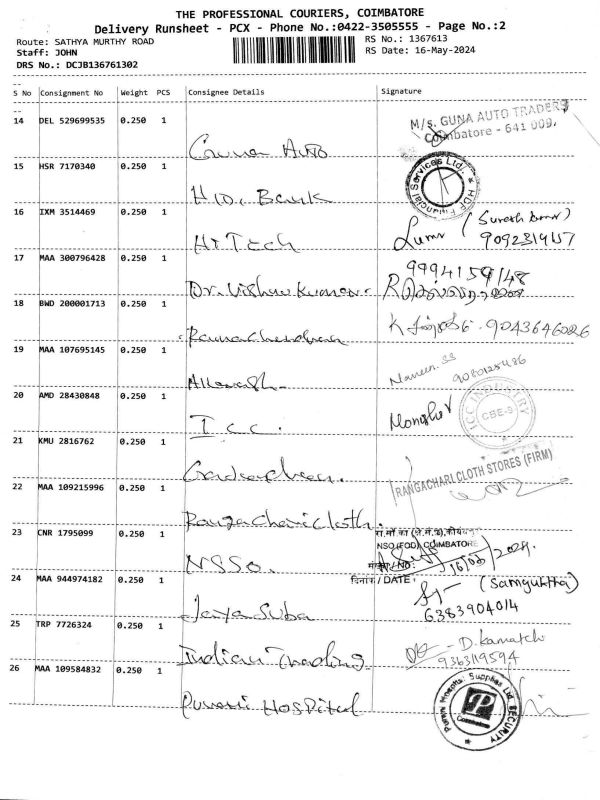 THE PROFESSIONAL COURIERS, COIMBATORE
Delivery Runsheet - PCX - Phone No.:0422-3505555 - Page No.:2
Route: SATHYA MURTHY ROAD
RS No.: 1367613
Staff: JOHN
RS Date: 16-May-2024
DRS No.: DCJB136761302
S No Consignment No Weight PCS Consignee Details Signature
14 DEL 529699535 0.250 1
M/s. GUNA AUTO TRADERS
Coimbatore - 641 009.
Guna Auto
15 HSR 7170340 0.250 1
HDF Financial Services Ltd.
Bank
16 IXM 3514469 0.250 1
(Suresh Kumar)
Hi Tech
17 MAA 300796428 0.250 1
9994159148
Dr. Vishnu Kumar
18 BWD 200001713 0.250 1
9043646026
Ramachandran
19 MAA 107695145 0.250 1
Naveen. SS
20 AMD 28430848 0.250 1
ICC INDUSTRY
CBE-9
I C C.
21 KMU 2816762 0.250 1
RANGACHARI CLOTH STORES (FIRM)
22 MAA 109215996 0.250 1
Rangachari Cloth.
23 CNR 1795099 0.250 1
NSO (FOD) COIMBATORE
NSSO.
दिनांक / DATE:
24 MAA 944974182 0.250 1
(Samyuktha)
6383904014
Jaya Suba
25 TRP 7726324 0.250 1
D. Kamatchi
9363119594
Indian Trading
26 MAA 109584832 0.250 1
P
Coimbatore
SECURITY
Hospital